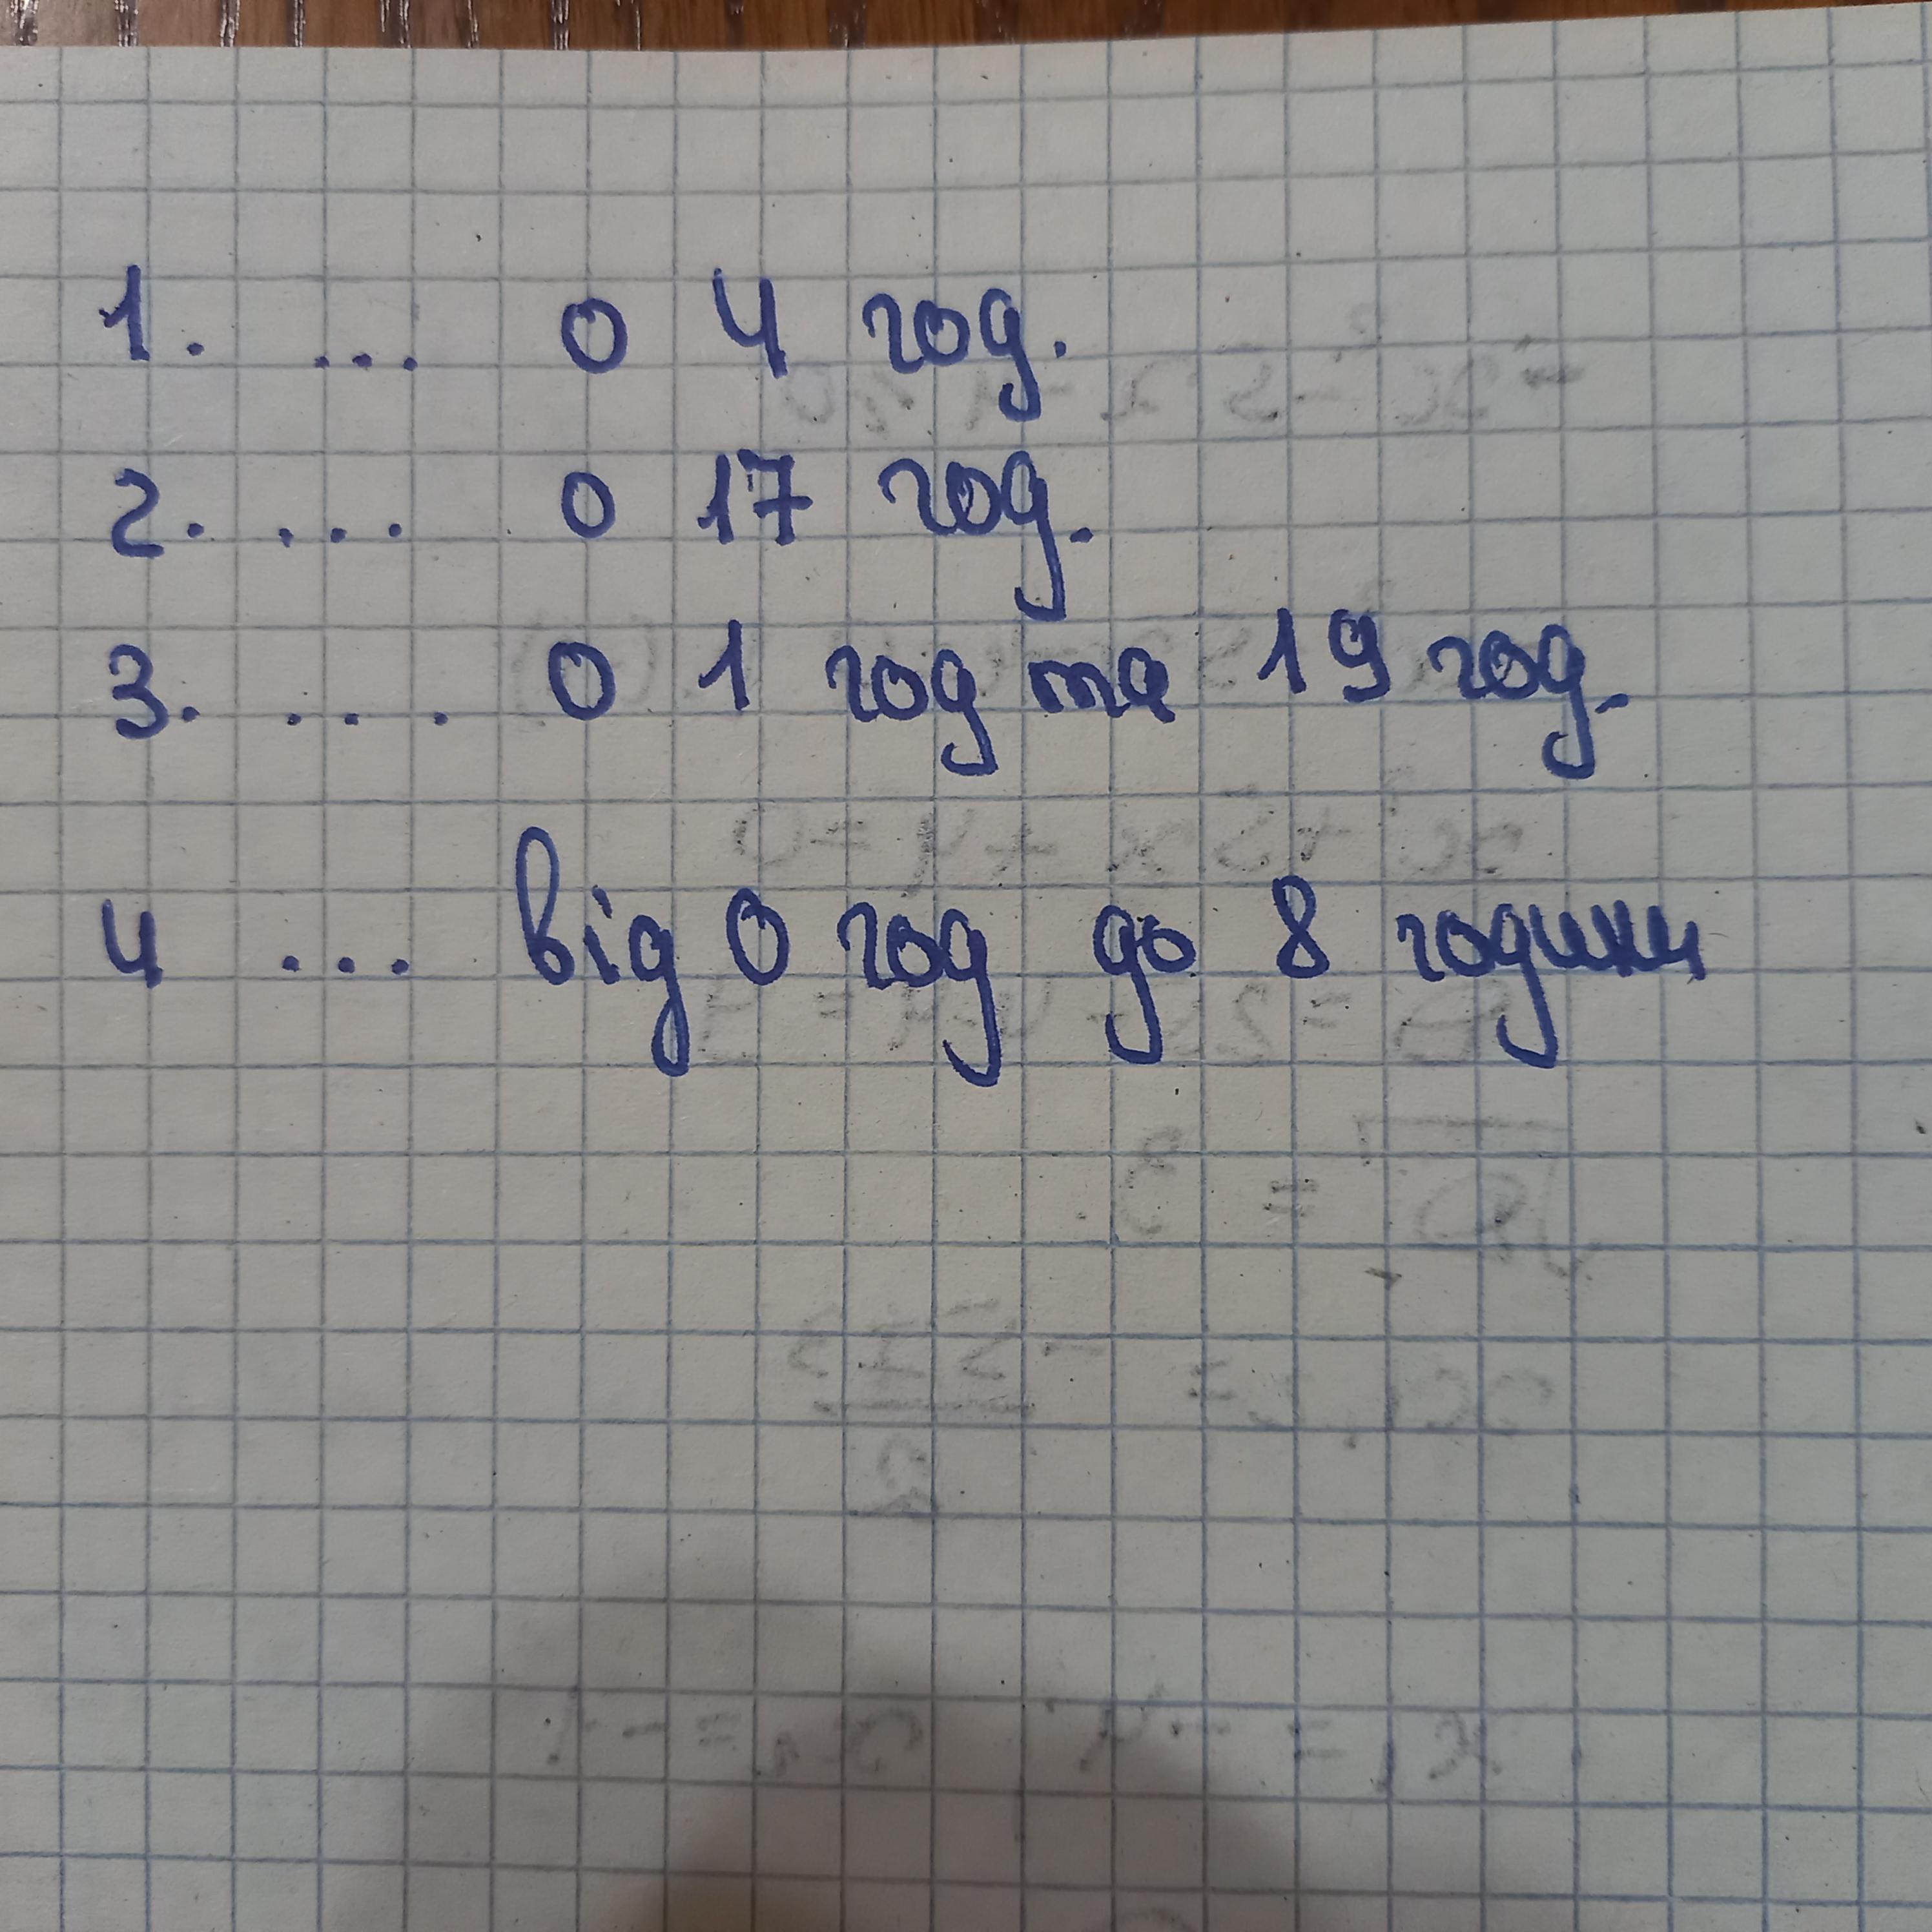 1. ... о 4 год.
2. ... о 17 год.
3. ... о 1 год та 19 год.
4 ... від 0 год до 8 години